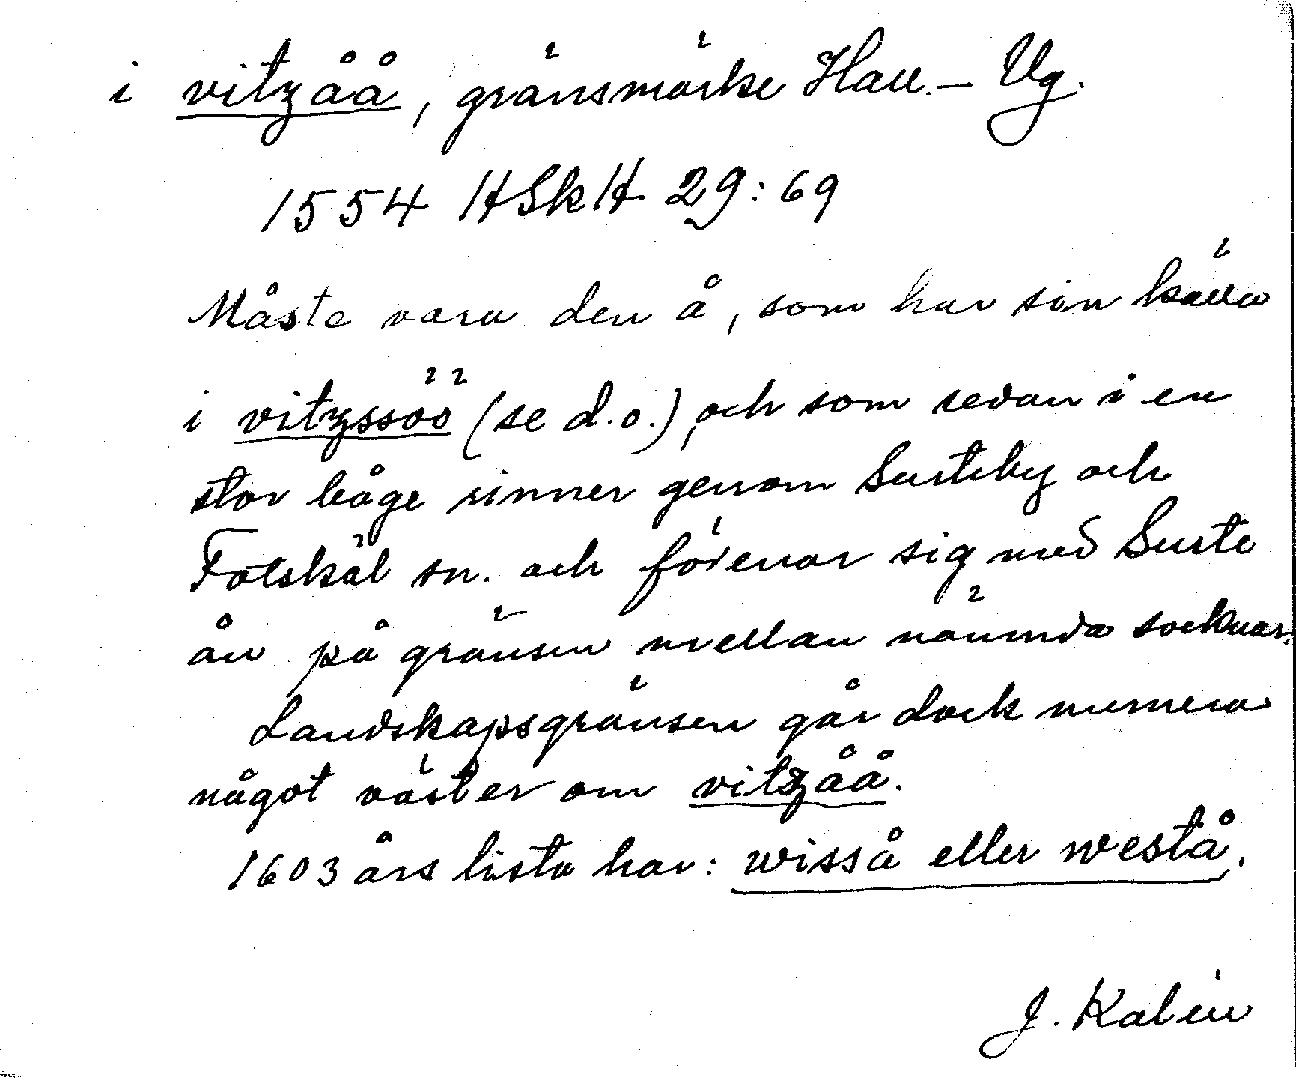 i vitzåå, gränsmärke Hall. – Vg.
1554 HSkH 29:69
Måste vara den å, som har sin källa
i vitzssöö (se d.o.), och som sedan i en
stor båge rinner genom Surteby och
Fotskäl sn. och förenar sig med Surte
ån på gränsen mellan nämnda socknar.
Landskapsgränsen går dock numera
något väster om vitzåå.
1603 års lista har: wisså eller westå.
J. Kalén